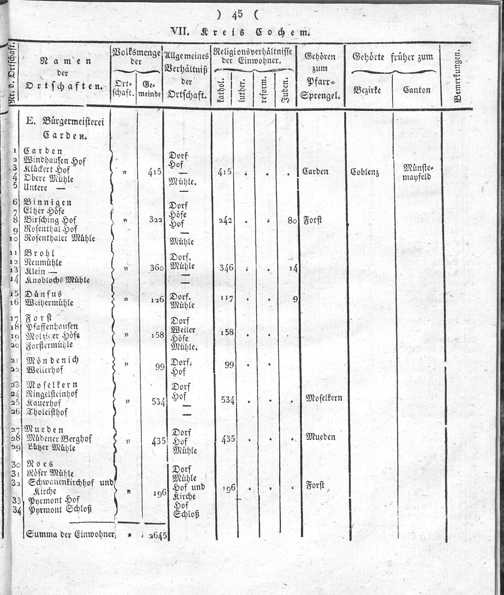 ) 45 (
VII. Kreis Cochem.
Nr. d. Ortschaft.
Namen der Ortschaften.
Volksmenge der
Ortschaft.
Gemeinde
Allgemeines Verhältniß der Ortschaft.
Religionsverhältnisse der Einwohner.
kathol.
luther.
reform.
Juden.
Gehören zum Pfarr-Sprengel.
Gehörte früher zum
Bezirke
Canton
Bemerkungen.
E. Bürgermeisterei
Carden.
1 Carden " 415 Dorf 415 Carden Coblenz Münstermayfeld
2 Windhausen Hof Hof
3 Klückert Hof —
4 Obere Mühle Mühle.
5 Untere — —
6 Binnigen " 322 Dorf 242 80 Forst
7 Elzer Höfe Höfe
8 Birsching Hof Hof
9 Rosenthal Hof —
10 Rosenthaler Mühle Mühle
11 Brohl " 360 Dorf. 346 14
12 Neumühle Mühle
13 Klein — —
14 Knoblochs Mühle —
15 Dünfus " 126 Dorf. 117 9
16 Weihermühle Mühle
17 Forst " 158 Dorf 158
18 Pfaffenhausen Weiler
19 Höfe Höfe
20 Forstermühle Mühle.
21 Möndenich " 99 Dorf. 99
22 Weilerhof Hof
23 Moselkern " 534 Dorf 534 Moselkern
24 Ringelsteinhof Hof
25 Kauerhof —
26 Tholeisthof —
27 Mueden " 435 Dorf 435 Mueden
28 Müdener Berghof Hof
29 Lützer Mühle Mühle
30 Roes " 196 Dorf 196 Forst
31 Röser Mühle Mühle
32 Schwanenkirchhof und Kirche Hof und Kirche
33 Pyrmont Hof Hof
34 Pyrmont Schloß Schloß
Summa der Einwohner, " 2645